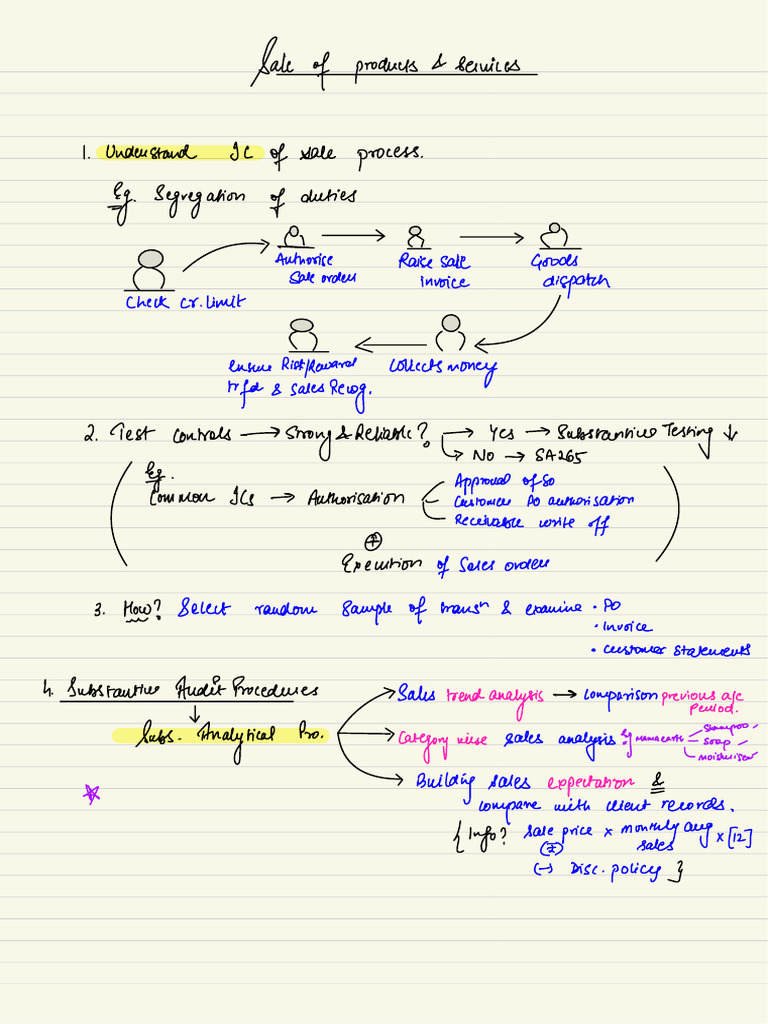 Sale of products & services
1. Understand IC of sale process.
Eg. Segregation of duties
Check cr. limit
Authorise
Sale order
Raise Sale
invoice
Goods
dispatch
Collects money
ensure Risk/Reward
trfd & Sales Recog.
2. Test controls → Strong & Reliable? → Yes → Substantive Testing ↓
→ NO → SA265
Eg.
Common ICs → Authorisation
Approval of SO
Customer PO authorisation
Receivable write off
+
Execution of Sales orders
3. How? Select random Sample of transn & examine • PO
• Invoice
• Customer Statements
4. Substantive Audit Procedures
Subs. Analytical Pro.
→ Sales trend analysis → Comparison previous a/c
period.
→ Category wise sales analysis Eg mamaearth
Shampoo
soap
moisturiser
→ Building sales expectation &
compare with client records.
{ Info? sale price × monthly avg × [12]
(₹) sales
(-) Disc. policy }